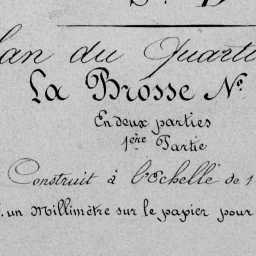 lan du Quarti
La Brosse No.
En deux parties
1ère Partie
Construit à l'Echelle de 1
un Millimètre sur le papier pour